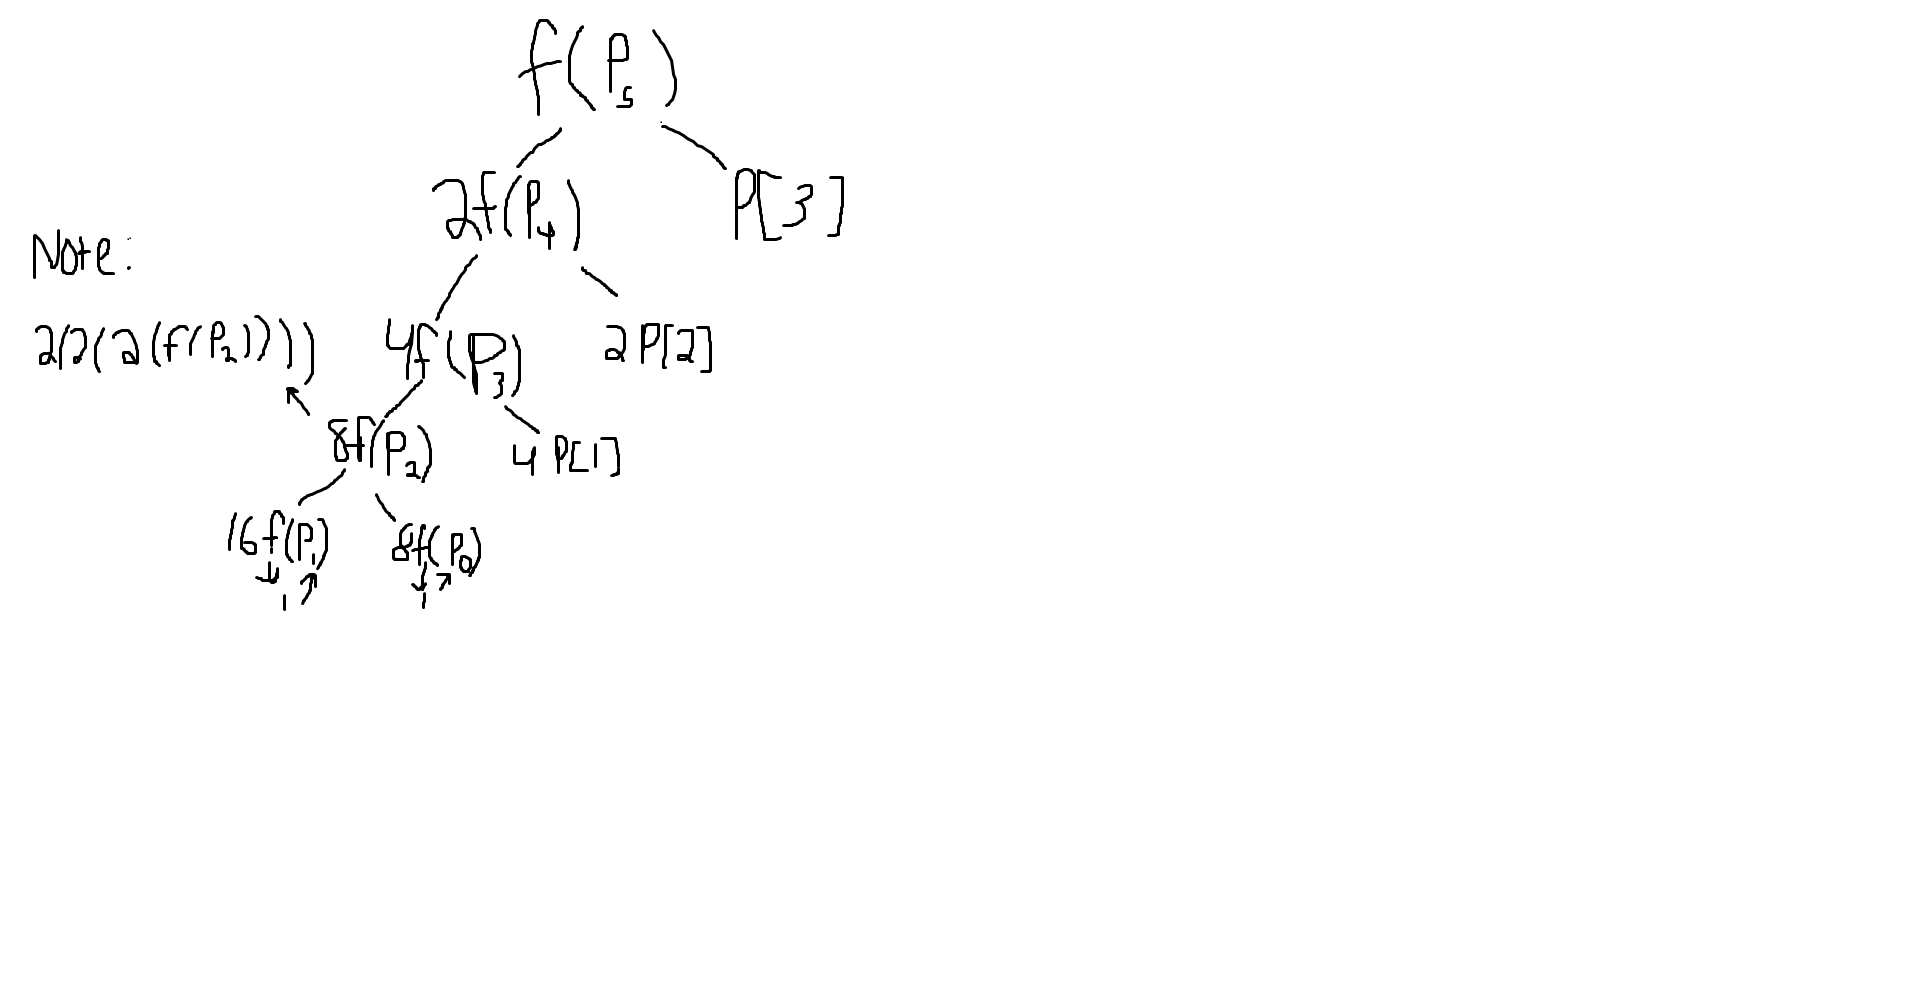 f(P₅)
2f(P₄) P[3]
Note:
2(2(2(f(P₂)))) 4f(P₃) 2P[2]
8f(P₂) 4P[1]
16f(P₁) 8f(P₀)
1 1